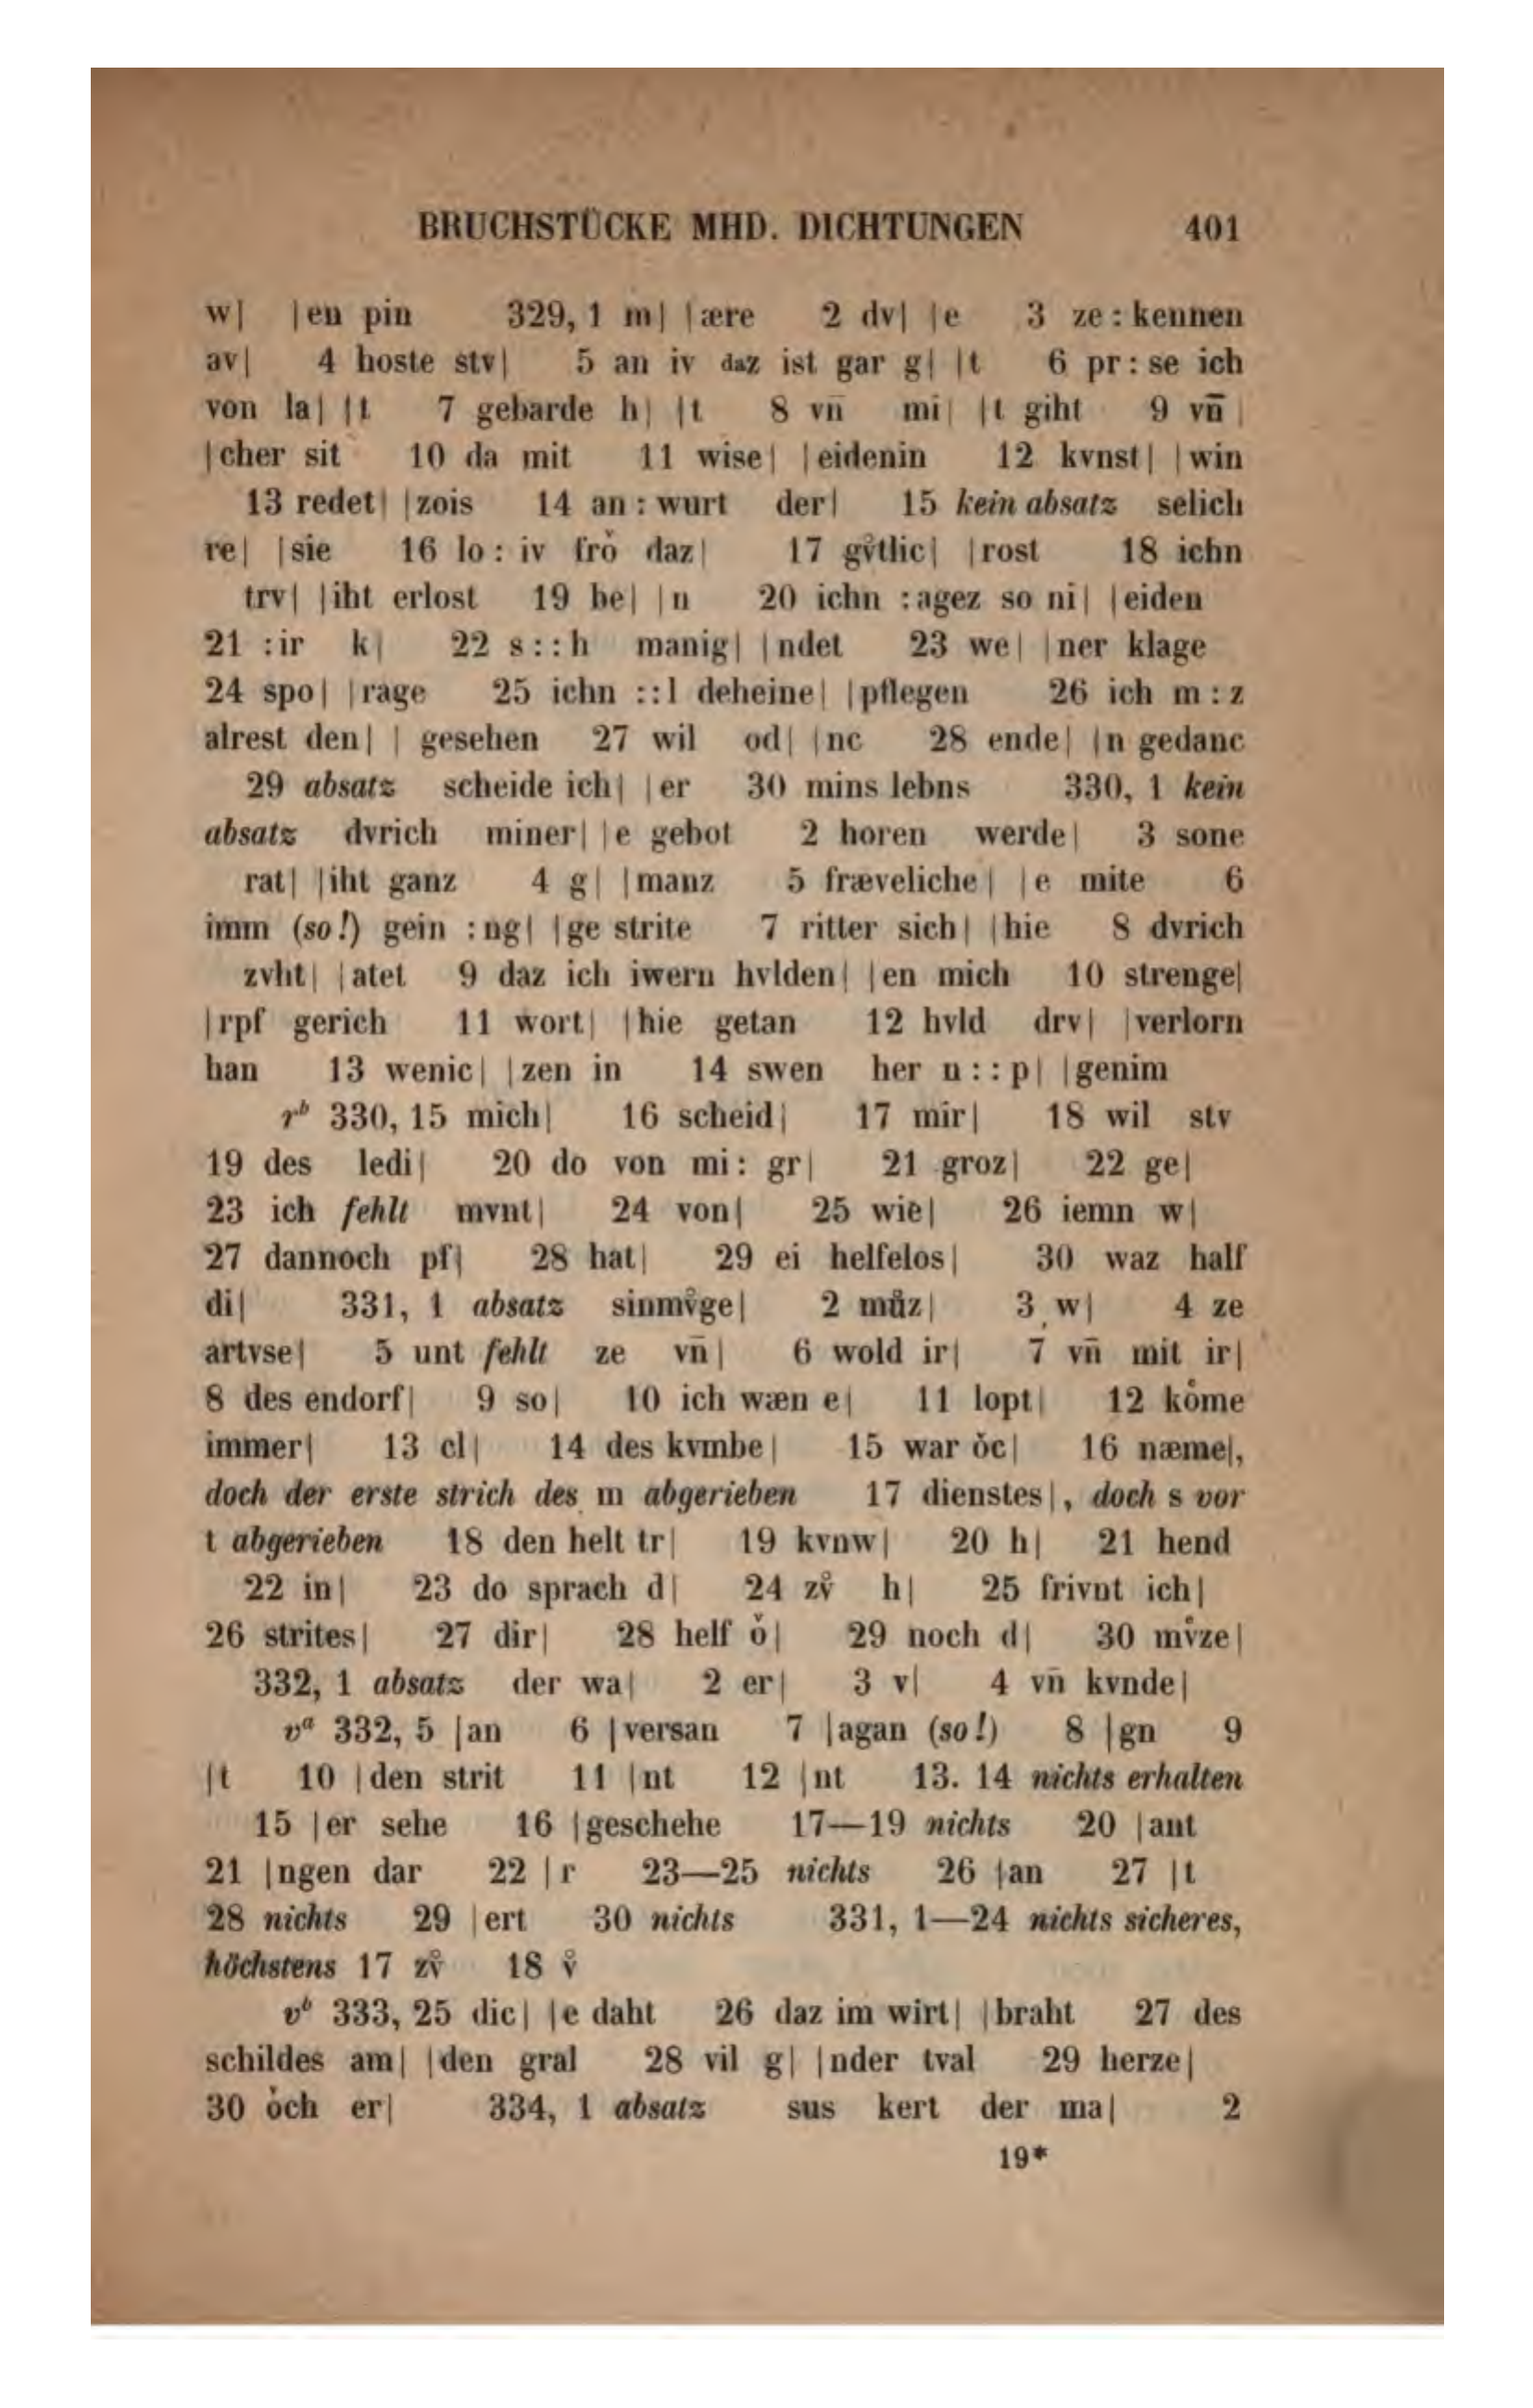 BRUCHSTÜCKE MHD. DICHTUNGEN 401
w| |en pin 329, 1 m| |ære 2 dv| |e 3 ze : kennen
av| 4 hoste stv| 5 an iv daz ist gar g| |t 6 pr : se ich
von la| |t 7 gebarde h| |t 8 vn̄ mi| |t giht 9 vn̄ |
|cher sit 10 da mit 11 wise| |eidenin 12 kvnst| |win
13 redet| |zois 14 an : wurt der| 15 kein absatz selich
re| |sie 16 lo : iv frǒ daz| 17 gv̊tlic| |rost 18 ichn
trv| |iht erlost 19 be| |n 20 ichn :agez so ni| |eiden
21 :ir k| 22 s : : h manig| |ndet 23 we| |ner klage
24 spo| |rage 25 ichn : : l deheine| |pflegen 26 ich m : z
alrest den| | gesehen 27 wil od| |nc 28 ende| |n gedanc
29 absatz scheide ich| |er 30 mins lebns 330, 1 kein
absatz dvrich miner| |e gebot 2 horen werde| 3 sone
rat| |iht ganz 4 g| |manz 5 fræveliche| |e mite 6
imm (so!) gein :ng| |ge strite 7 ritter sich| |hie 8 dvrich
zvht| |atet 9 daz ich iwern hvlden| |en mich 10 strenge|
|rpf gerich 11 wort| |hie getan 12 hvld drv| |verlorn
han 13 wenic| |zen in 14 swen her n : : p| |genim
rᵇ 330, 15 mich| 16 scheid| 17 mir| 18 wil stv
19 des ledi| 20 do von mi : gr| 21 groz| 22 ge|
23 ich fehlt mvnt| 24 von| 25 wie| 26 iemn w|
27 dannoch pf| 28 hat| 29 ei helfelos| 30 waz half
di| 331, 1 absatz sinmv̊ge| 2 můz| 3 w| 4 ze
artvse| 5 unt fehlt ze vn̄| 6 wold ir| 7 vn̄ mit ir|
8 des endorf| 9 so| 10 ich wæn e| 11 lopt| 12 ko̊me
immer| 13 cl| 14 des kvmbe| 15 war ǒc| 16 næme|,
doch der erste strich des m abgerieben 17 dienstes|, doch s vor
t abgerieben 18 den helt tr| 19 kvnw| 20 h| 21 hend
22 in| 23 do sprach d| 24 zv̊ h| 25 frivnt ich|
26 strites| 27 dir| 28 helf ǒ| 29 noch d| 30 mv̊ze|
332, 1 absatz der wa| 2 er| 3 v| 4 vn̄ kvnde|
vᵃ 332, 5 |an 6 |versan 7 |agan (so!) 8 |gn 9
|t 10 |den strit 11 |nt 12 |nt 13. 14 nichts erhalten
15 |er sehe 16 |geschehe 17—19 nichts 20 |ant
21 |ngen dar 22 |r 23—25 nichts 26 |an 27 |t
28 nichts 29 |ert 30 nichts 331, 1—24 nichts sicheres,
höchstens 17 zv̊ 18 v̊
vᵇ 333, 25 dic| |e daht 26 daz im wirt| |braht 27 des
schildes am| |den gral 28 vil g| |nder tval 29 herze|
30 ǒch er| 334, 1 absatz sus kert der ma| 2
19*